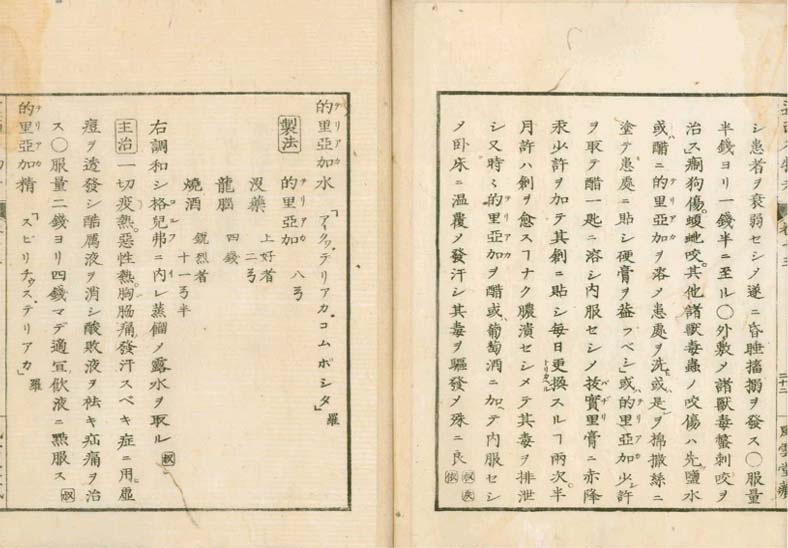 シ患者ヲ衰弱セシメ遂ニ昏睡搐搦ヲ發ス〇服量
半錢ヨリ一錢半ニ至ル〇外敷メ諸獸毒螫刺咬ヲ
治ス狗傷。蝮虵咬。其他諸獸毒蟲ノ咬傷ハ先鹽水
或ハ醋ニ的里亞加ヲ溶メ患處ヲ洗或ハ是ヲ棉撒絲ニ
塗テ患處ニ貼シ硬膏ヲ葢フベシ或ハ的里亞加少許
ヲ取テ醋一匙ニ溶シ內服セシメ抜實里膏ニ赤降
汞少許ヲ加テ其創ニ貼シ每日更換スルヿ兩次。半
月許ハ創ヲ愈スヿナク膿潰セシメテ其毒ヲ排泄
シ又時〻的里亞加ヲ醋或ハ葡萄酒ニ加ヘテ內服セシ
メ臥床ニ温覆メ發汗シ其毒ヲ驅發メ殊ニ良
的里亞加水「アクワ、デリアカ、コムポシタ」羅
製法 的里亞加 八
沒藥 上好者 二
龍腦 四錢
燒酒 銳烈者 十一半
右調和シ格兒弗ニ內レ蒸餾メ露水ヲ取ル
主治 一切疫熱。惡性熱。胸脇痛。發汗スベキ症ニ用虛
痘ヲ透發シ酷厲液ヲ消シ酸敗液ヲ袪キ疝痛ヲ治
ス〇服量二錢ヨリ四錢マデ適宜飮液ニ㸃服ス
的里亞加精「スピリチゥス、テリアカ」羅